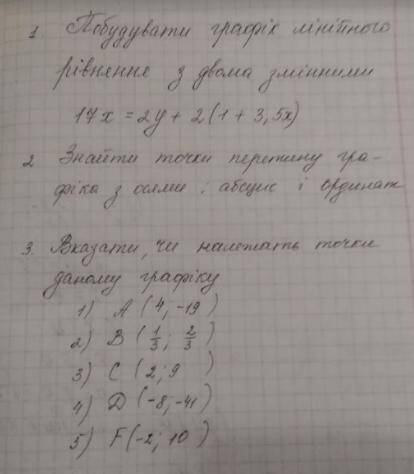 1. Побудувати графік лінійного
рівняння з двома змінними
17x = 2y + 2(1 + 3,5x)
2. Знайти точки перетину гра-
фіка з осями : абсцис і ординат
3. Вказати, чи належать точки
даному графіку
1) A (4; -19)
2) B (1/3; 2/3)
3) C (2; 9)
4) D (-8; -41)
5) F (-2; 10)